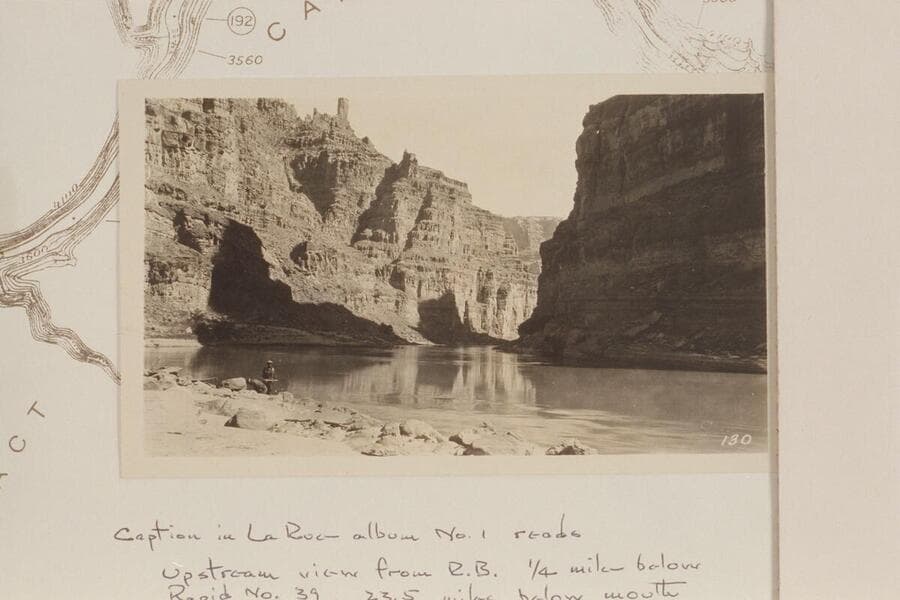 192
CA
3560
4000
ACT
130
Caption in La Rue album No. 1 reads
Upstream view from R.B. 1/4 mile below
Rapid No. 39 23.5 miles below mouth